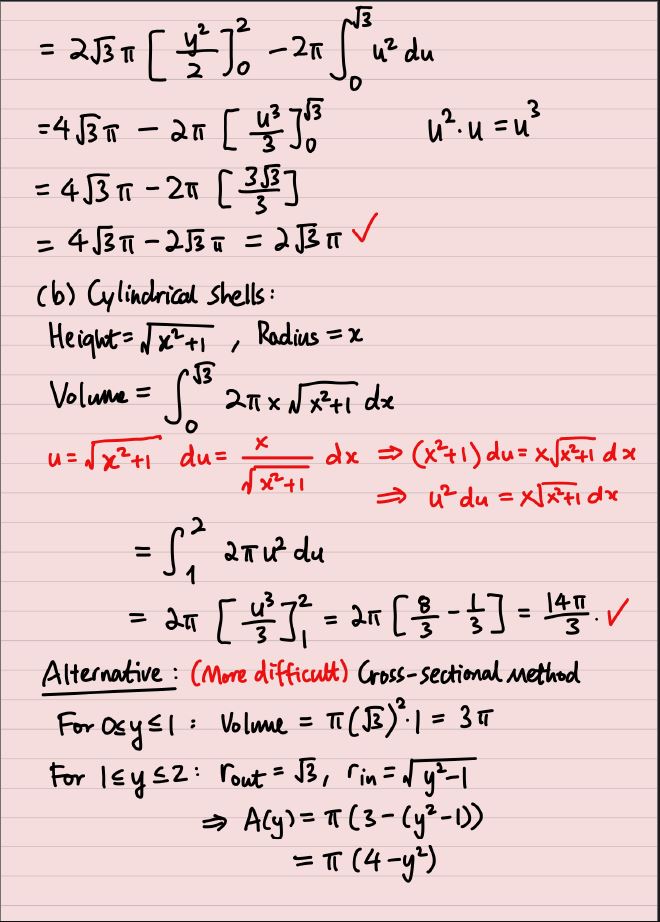 = 2√3 π [ y²/2 ]₀² - 2π ∫₀^√3 u² du
= 4√3 π - 2π [ u³/3 ]₀^√3    u²·u = u³
= 4√3 π - 2π [ 3√3/3 ]
= 4√3 π - 2√3 π = 2√3 π ✓
(b) Cylindrical shells:
Height = √(x²+1) , Radius = x
Volume = ∫₀^√3 2π x √(x²+1) dx
u = √(x²+1)  du = x/√(x²+1) dx ⇒ (x²+1) du = x√(x²+1) dx
⇒ u² du = x√(x²+1) dx
= ∫₁² 2π u² du
= 2π [ u³/3 ]₁² = 2π [ 8/3 - 1/3 ] = 14π/3. ✓
Alternative: (More difficult) Cross-sectional method
For 0≤y≤1 : Volume = π(√3)²·1 = 3π
For 1≤y≤2: r_out = √3, r_in = √(y²-1)
⇒ A(y) = π(3-(y²-1))
= π(4-y²)